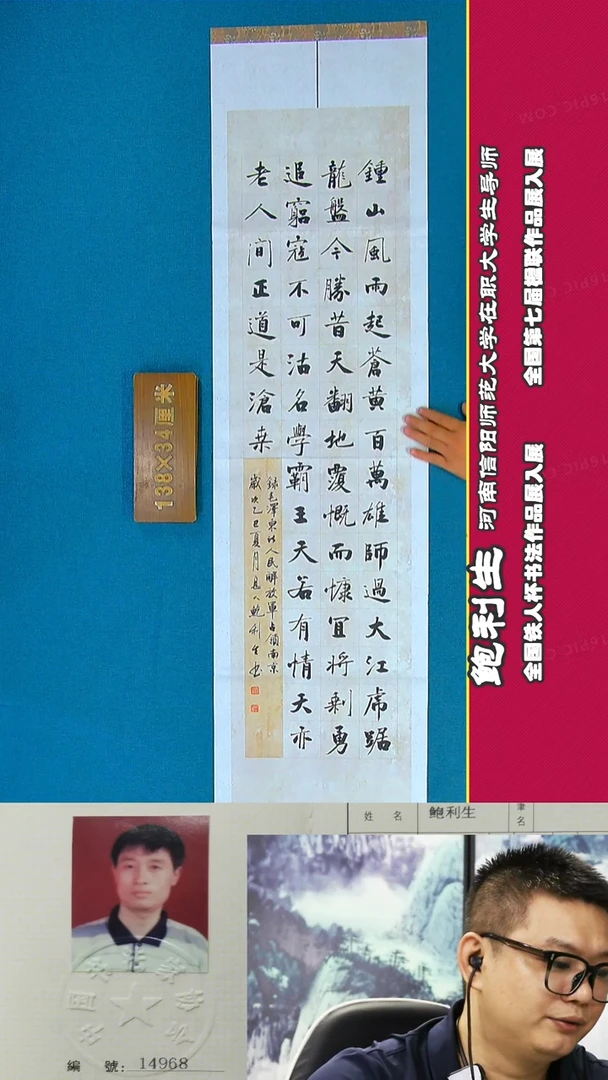 鍾山風雨起蒼黄百萬雄師過大江虎踞
龍盤今勝昔天翻地覆慨而慷宜將剩勇
追窮寇不可沽名學霸王天若有情天亦
老人間正道是滄桑
錄毛澤東詩人民解放軍占領南京
歲次乙巳夏月息人鮑利生书
138×34厘米
鲍利生 河南信阳师范大学在职大学生导师
全国铁人杯书法作品展入展 全国第七届楹联作品展入展
姓 名 鲍利生 筆名
編 號: 14968